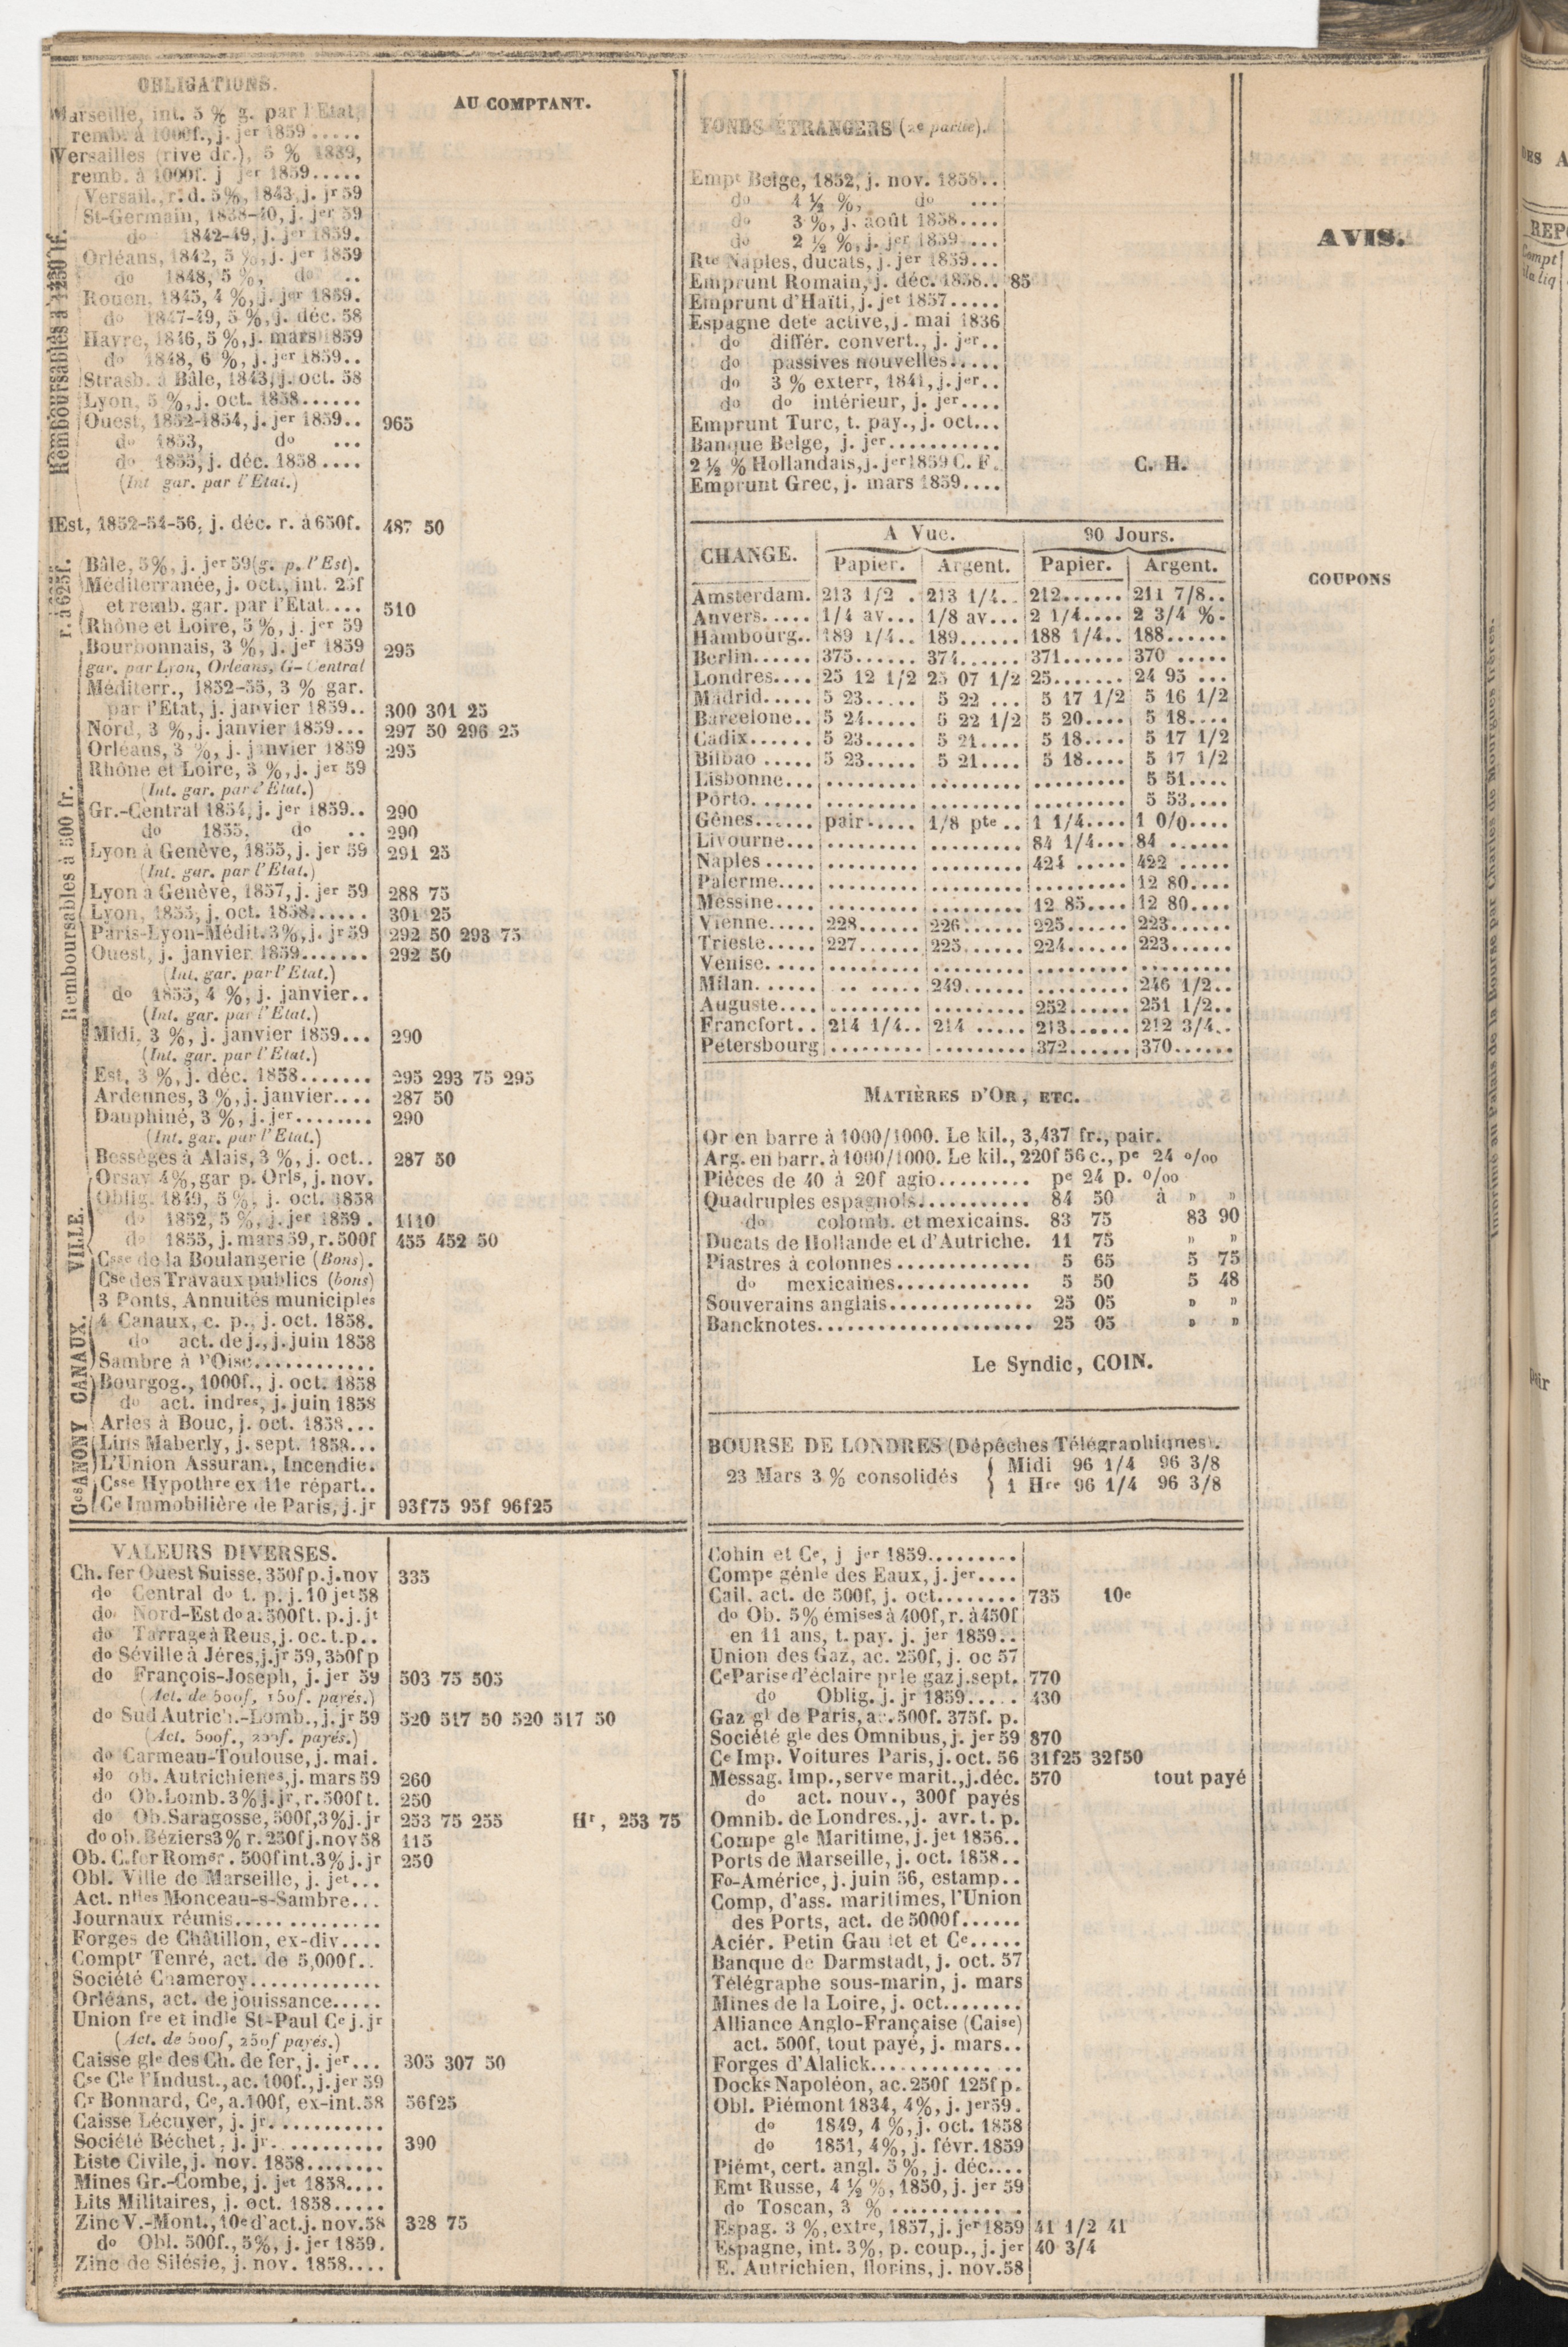 OBLIGATIONS.
AU COMPTANT.
Marseille, int. 5 % g. par l'Etat,
remb. à 1000f., j. jer 1859 .....
Versailles (rive dr.), 5 % 1839,
remb. à 1000f. j jer 1859.....
Remboursables à 1250 f.
Versail., r. d. 5%, 1843, j. jr 59
St-Germain, 1838-40, j. jer 59
do 1842-49, j. jer 1859.
Orléans, 1842, 5 %, j. jer 1859
do 1848, 5 %, do ..
Rouen, 1845, 4 %, j. jer 1859.
do 1847-49, 5 %, j. déc. 58
Havre, 1846, 5 %, j. mars 1859
do 1848, 6 %, j. jer 1859..
Strasb. à Bâle, 1843, j. oct. 58
Lyon, 5 %, j. oct. 1858......
Ouest, 1852-1854, j. jer 1859.. 965
do 1853, do ...
do 1855, j. déc. 1858....
(Int gar. par l'Etat.)
Est, 1852-54-56, j. déc. r. à 650f. 487 50
r. à 625f.
Bâle, 5%, j. jer 59 (g. p. l'Est).
Méditerranée, j. oct., int. 25f
et remb. gar. par l'Etat.... 510
Rhône et Loire, 5 %, j. jer 59
Remboursables à 500 fr.
Bourbonnais, 3 %, j. jer 1859 295
gar. par Lyon, Orléans, G-Central
Méditerr., 1852-55, 3 % gar.
par l'Etat, j. janvier 1859.. 300 301 25
Nord, 3 %, j. janvier 1859... 297 50 296 25
Orléans, 3 %, j. janvier 1859 295
Rhône et Loire, 3 %, j. jer 59
(Int. gar. par l'Etat.)
Gr.-Central 1854, j. jer 1859.. 290
do 1855. do .. 290
Lyon à Genève, 1855, j. jer 59 291 25
(Int. gar. par l'Etat.)
Lyon à Genève, 1857, j. jer 59 288 75
Lyon, 1855, j. oct. 1858...... 301 25
Paris-Lyon-Médit. 3%, j. jr 59 292 50 293 75
Ouest, j. janvier 1859....... 292 50
(Int. gar. par l'Etat.)
do 1855, 4 %, j. janvier..
(Int. gar. par l'Etat.)
Midi, 3 %, j. janvier 1859... 290
(Int. gar. par l'Etat.)
Est, 3 %, j. déc. 1858....... 295 293 75 295
Ardennes, 3 %, j. janvier.... 287 50
Dauphiné, 3 %, j. jer........ 290
(Int. gar. par l'Etat.)
Bességes à Alais, 3 %, j. oct.. 287 50
Orsay 4%, gar p. Orls, j. nov.
VILLE.
Oblig. 1849, 5 %, j. oct. 1858
do 1852, 5 %, j. jer 1859 . 1110
do 1855, j. mars 59, r. 500f 455 452 50
Csse de la Boulangerie (Bons).
Cse des Travaux publics (bons)
3 Ponts, Annuités municiples
CANAUX.
4 Canaux, c. p., j. oct. 1858.
do act. de j., j. juin 1858
Sambre à l'Oise............
Bourgog., 1000f., j. oct. 1858
do act. indres, j. juin 1858
Arles à Bouc, j. oct. 1858...
Ces ANONY
Lins Maberly, j. sept. 1858...
L'Union Assuran., Incendie.
Csse Hypothre ex 11e répart..
Ce Immobilière de Paris, j. jr 93f75 95f 96f25
VALEURS DIVERSES.
Ch. fer Ouest Suisse, 350f p. j. nov 335
do Central do t. p. j. 10 jet 58
do Nord-Est do a. 500f t. p. j. jt
do Tarrage à Reus, j. oc. t. p..
do Séville à Jéres, j. jr 59, 350f p
do François-Joseph, j. jer 59 503 75 505
(Act. de 500f, 150f. payés.)
do Sud Autrich.-Lomb., j. jr 59 520 517 50 520 517 50
(Act. 500f., 250f. payés.)
do Carmeau-Toulouse, j. mai.
do ob. Autrichienes, j. mars 59 260
do Ob. Lomb. 3% j. jr, r. 500f t. 250
do Ob. Saragosse, 500f, 3% j. jr 253 75 255 Hr, 253 75
do ob. Béziers 3% r. 250f j. nov 58 115
Ob. C. fer Romsr. 500f int. 3% j. jr 250
Obl. Ville de Marseille, j. jet...
Act. nlles Monceau-s-Sambre...
Journaux réunis..............
Forges de Châtillon, ex-div....
Comptr Tenré, act. de 5,000f..
Société Chameroy.............
Orléans, act. de jouissance.....
Union fre et indle St-Paul Ce j. jr
(Act. de 500f, 250f payés.)
Caisse gle des Ch. de fer, j. jer... 305 307 50
Cse Cle l'Indust., ac. 100f., j. jer 59
Cr Bonnard, Ce, a. 100f, ex-int. 58 56f25
Caisse Lécuyer, j. jr...........
Société Béchet, j. jr........... 390
Liste Civile, j. nov. 1858........
Mines Gr.-Combe, j. jet 1858....
Lits Militaires, j. oct. 1858.....
Zinc V.-Mont., 10e d'act. j. nov. 58 328 75
do Obl. 500f., 5%, j. jer 1859.
Zinc de Silésie, j. nov. 1858....
FONDS ÉTRANGERS (2e partie).
Empt Belge, 1852, j. nov. 1858..
do 4 ½ %, do ...
do 3 %, j. août 1858....
do 2 ½ %, j. jer 1859....
Rte Naples, ducats, j. jer 1859...
Emprunt Romain, j. déc. 1858.. 85
Emprunt d'Haïti, j. jet 1857.....
Espagne dete active, j. mai 1836
do différ. convert., j. jer..
do passives nouvelles.....
do 3 % exterr, 1841, j. jer..
do do intérieur, j. jer....
Emprunt Turc, t. pay., j. oct...
Banque Belge, j. jer...........
2 ½ % Hollandais, j. jer 1859 C. F. C. H.
Emprunt Grec, j. mars 1859....
CHANGE. A Vue. 90 Jours.
Papier. Argent. Papier. Argent.
Amsterdam. 213 1/2 . 213 1/4.. 212...... 211 7/8..
Anvers..... 1/4 av... 1/8 av... 2 1/4.... 2 3/4 %.
Hambourg.. 189 1/4.. 189...... 188 1/4.. 188......
Berlin...... 375...... 374...... 371...... 370 .....
Londres.... 25 12 1/2 25 07 1/2 25....... 24 95 ...
Madrid..... 5 23..... 5 22 ... 5 17 1/2 5 16 1/2
Barcelone.. 5 24..... 5 22 1/2 5 20.... 5 18....
Cadix...... 5 23..... 5 21.... 5 18.... 5 17 1/2
Bilbao ..... 5 23..... 5 21.... 5 18.... 5 17 1/2
Lisbonne... ......... ......... ......... 5 51....
Porto...... ......... ......... ......... 5 53....
Gênes...... pair..... 1/8 pte .. 1 1/4.... 1 0/0....
Livourne... ......... ......... 84 1/4... 84 ......
Naples ..... ......... ......... 424 ..... 422 .....
Palerme.... ......... ......... ......... 12 80....
Messine.... ......... ......... 12 85.... 12 80....
Vienne..... 228...... 226...... 225...... 223......
Trieste..... 227...... 225...... 224...... 223......
Venise..... ......... ......... ......... .........
Milan...... .. ..... 249...... ......... 246 1/2..
Auguste.... ......... ......... 252...... 251 1/2..
Francfort.. 214 1/4.. 214 ..... 213...... 212 3/4..
Pétersbourg ......... ......... 372...... 370......
MATIÈRES D'OR, ETC.
Or en barre à 1000/1000. Le kil., 3,437 fr., pair.
Arg. en barr. à 1000/1000. Le kil., 220f 56 c., pe 24 o/oo
Pièces de 40 à 20f agio......... pe 24 p. o/oo
Quadruples espagnols........... 84 50 à » »
do colomb. et mexicains. 83 75 83 90
Ducats de Hollande et d'Autriche. 11 75 » »
Piastres à colonnes............. 5 65 5 75
do mexicaines............. 5 50 5 48
Souverains anglais.............. 25 05 » »
Bancknotes..................... 25 05 » »
Le Syndic, COIN.
BOURSE DE LONDRES (Dépêches Télégraphiques).
23 Mars 3 % consolidés { Midi 96 1/4 96 3/8
1 Hre 96 1/4 96 3/8
Cohin et Ce, j jer 1859.........
Compe génle des Eaux, j. jer....
Cail, act. de 500f, j. oct........ 735 10e
do Ob. 5% émises à 400f, r. à 450f
en 11 ans, t. pay. j. jer 1859..
Union des Gaz, ac. 250f, j. oc 57
Ce Parise d'éclaire pr le gaz j. sept. 770
do Oblig. j. jr 1859..... 430
Gaz gl de Paris, ac. 500f. 375f. p.
Société gle des Omnibus, j. jer 59 870
Ce Imp. Voitures Paris, j. oct. 56 31f25 32f50
Messag. Imp., serve marit., j. déc. 570 tout payé
do act. nouv., 300f payés
Omnib. de Londres., j. avr. t. p.
Compe gle Maritime, j. jet 1856..
Ports de Marseille, j. oct. 1858..
Fo-Américe, j. juin 56, estamp..
Comp, d'ass. maritimes, l'Union
des Ports, act. de 5000f......
Aciér. Petin Gaudet et Ce.....
Banque de Darmstadt, j. oct. 57
Télégraphe sous-marin, j. mars
Mines de la Loire, j. oct........
Alliance Anglo-Française (Caise)
act. 500f, tout payé, j. mars..
Forges d'Alalick..............
Docks Napoléon, ac. 250f 125f p.
Obl. Piémont 1834, 4%, j. jer 59.
do 1849, 4 %, j. oct. 1858
do 1851, 4%, j. févr. 1859
Piémt, cert. angl. 5 %, j. déc....
Emt Russe, 4 ½ %, 1850, j. jer 59
do Toscan, 3 % ............
Espag. 3 %, extre, 1857, j. jer 1859 41 1/2 41
Espagne, int. 3%, p. coup., j. jer 40 3/4
E. Autrichien, florins, j. nov. 58
AVIS.
COUPONS
Imprimé au Palais de la Bourse par Charles de Mourgues frères.
DES A
REP
Compt
la liq